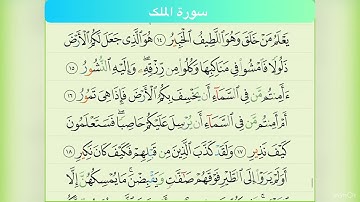 سورة الملك
يَعْلَمُ مَنْ خَلَقَ وَهُوَ ٱللَّطِيفُ ٱلْخَبِيرُ ١٤ هُوَ ٱلَّذِى جَعَلَ لَكُمُ ٱلْأَرْضَ
ذَلُولًا فَٱمْشُوا۟ فِى مَنَاكِبِهَا وَكُلُوا۟ مِن رِّزْقِهِۦ وَإِلَيْهِ ٱلنُّشُورُ ١٥
ءَأَمِنتُم مَّن فِى ٱلسَّمَآءِ أَن يَخْسِفَ بِكُمُ ٱلْأَرْضَ فَإِذَا هِىَ تَمُورُ ١٦
أَمْ أَمِنتُم مَّن فِى ٱلسَّمَآءِ أَن يُرْسِلَ عَلَيْكُمْ حَاصِبًا فَسَتَعْلَمُونَ
كَيْفَ نَذِيرِ ١٧ وَلَقَدْ كَذَّبَ ٱلَّذِينَ مِن قَبْلِهِمْ فَكَيْفَ كَانَ نَكِيرِ ١٨
أَوَلَمْ يَرَوْا۟ إِلَى ٱلطَّيْرِ فَوْقَهُمْ صَٰٓفَّٰتٍ وَيَقْبِضْنَ مَا يُمْسِكُهُنَّ إِلَّا